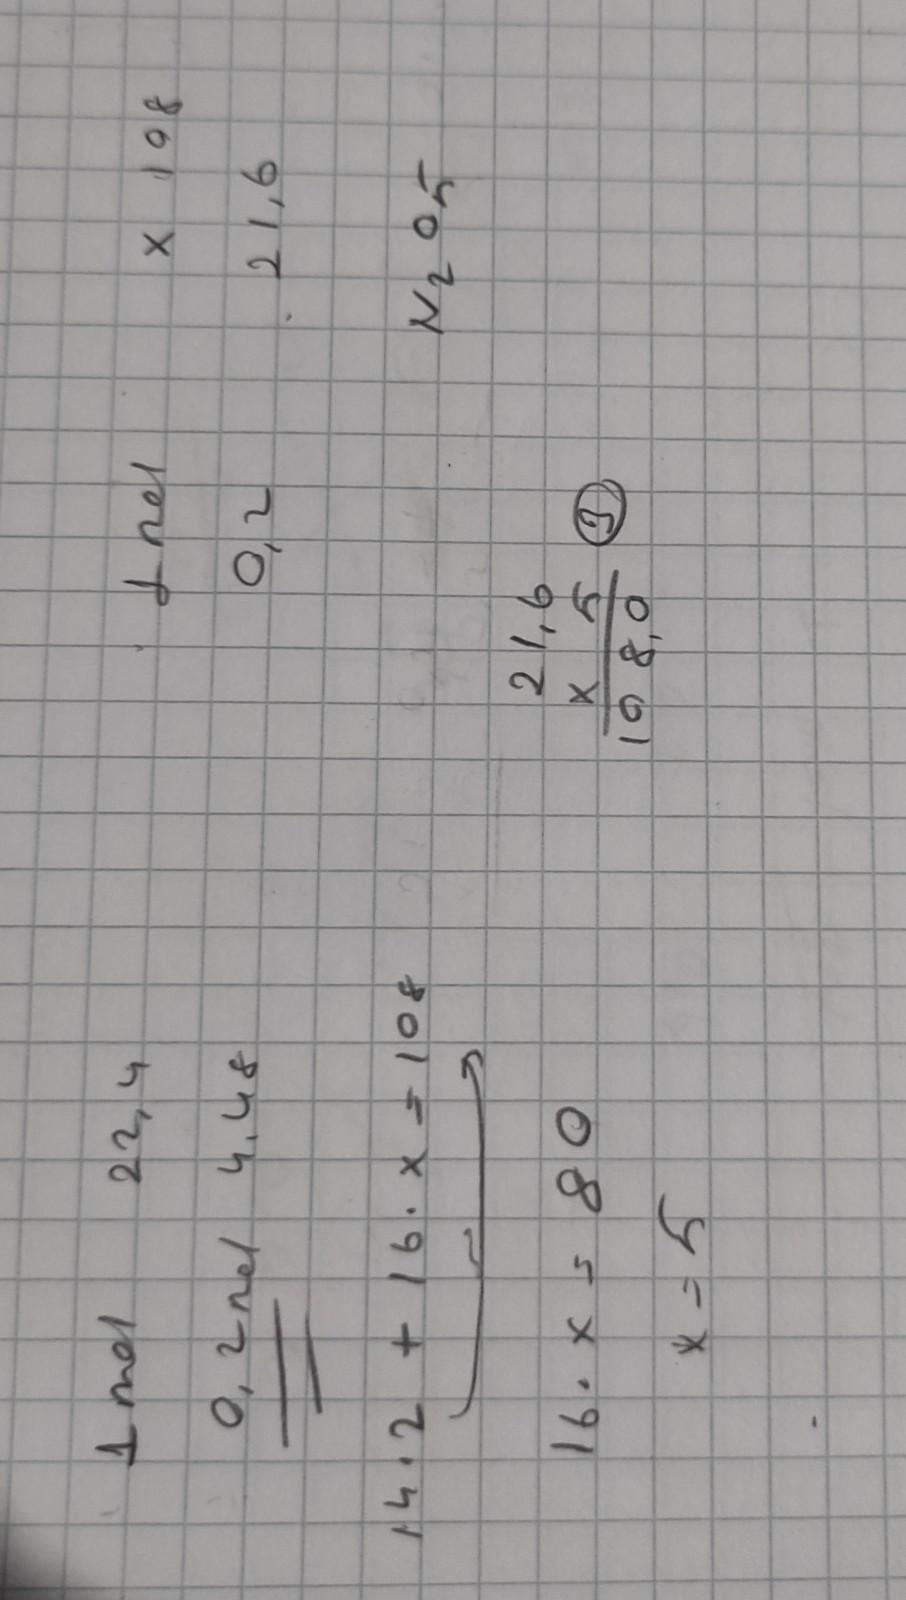 1 mol 22,4 1 mol x 108
0,2 mol 4,48 0,2 21,6
14.2 + 16.x = 108 N2O5
16.x = 80
x = 5
21,6
x 5
108,0